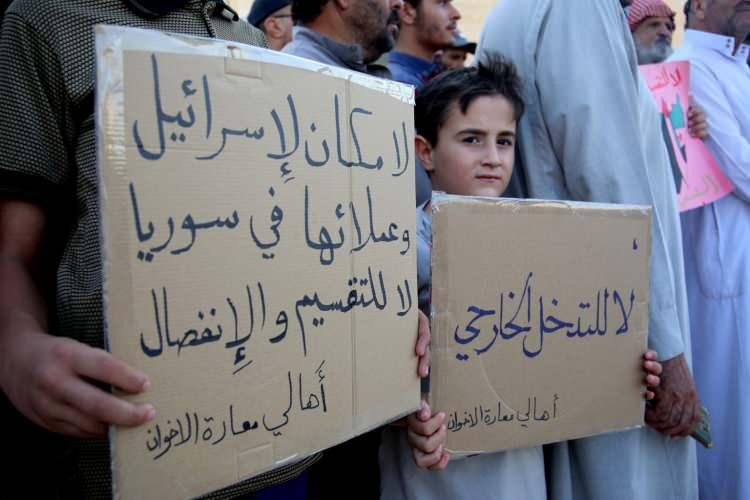 لا مكان لإسرائيل
وعملائها في سوريا
لا للتقسيم والإنفصال
أهالي معارة الاخوان
لا للتدخل الخارجي
أهالي معارة الاخوان